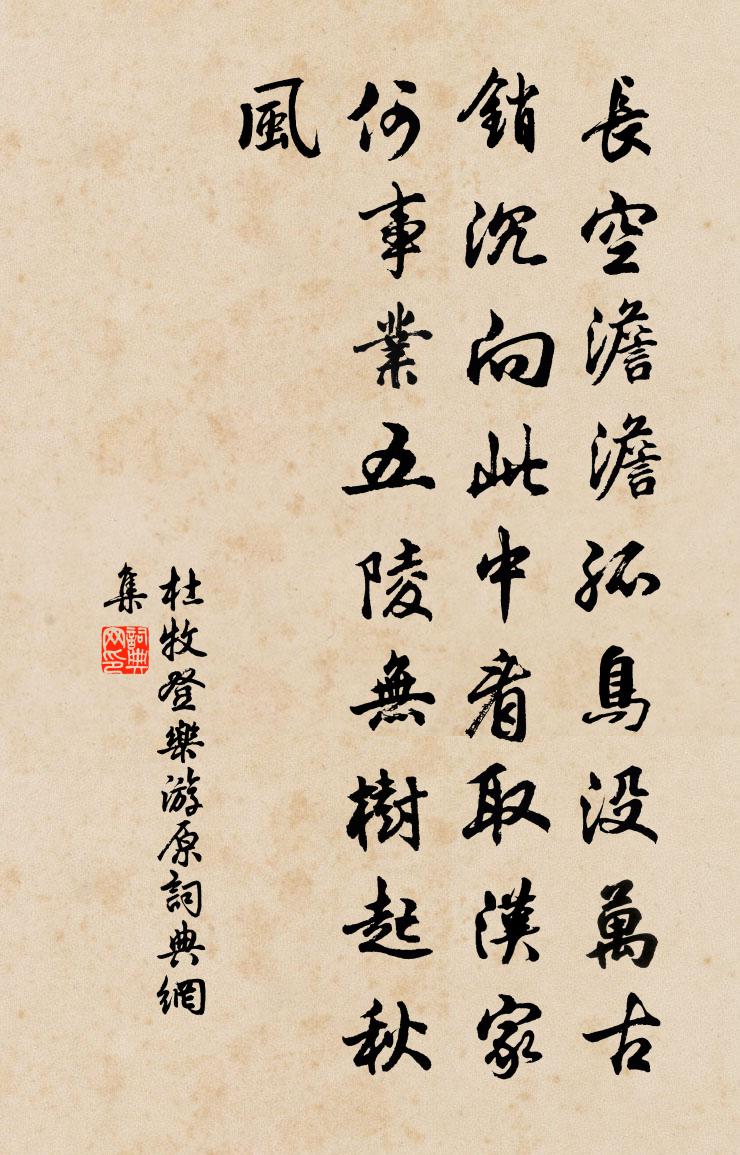 長空澹澹孤鳥没萬古
銷沉向此中看取漢家
何事業五陵無樹起秋
風
杜牧登樂游原詞典網
集
詞典
网印